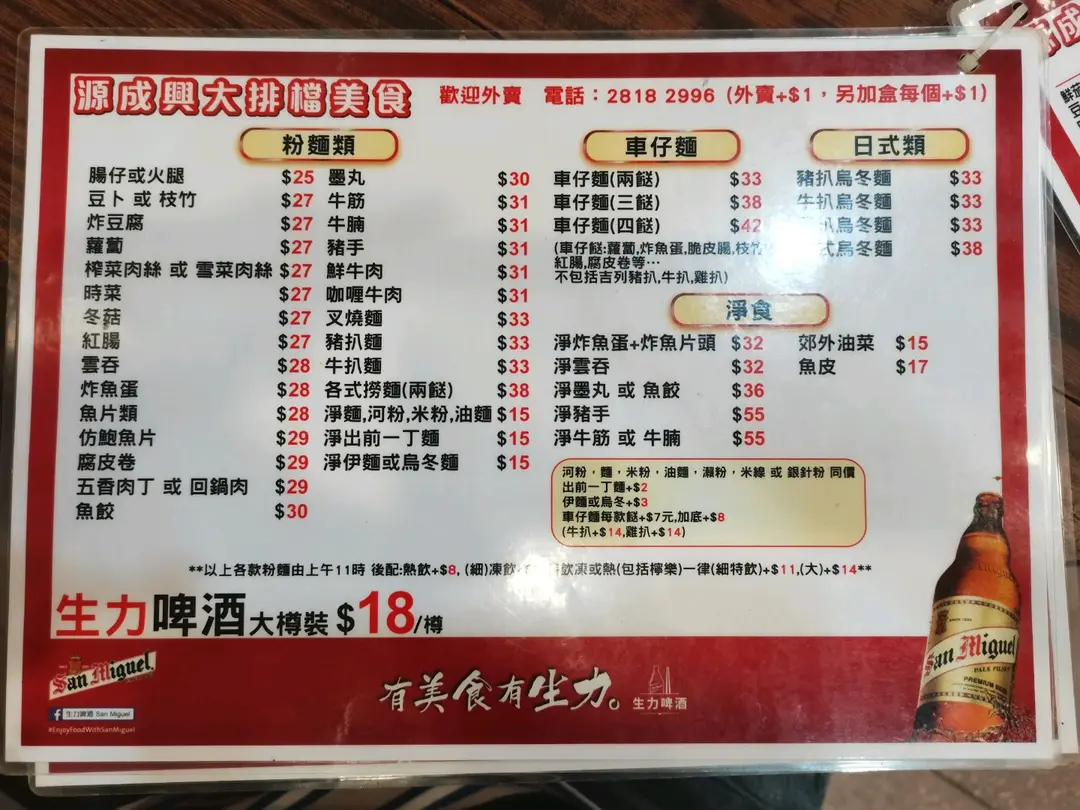 源成興大排檔美食
歡迎外賣 電話：2818 2996 (外賣+$1，另加盒每個+$1)
粉麵類
腸仔或火腿 $25
豆卜 或 枝竹 $27
炸豆腐 $27
蘿蔔 $27
榨菜肉絲 或 雪菜肉絲 $27
時菜 $27
冬菇 $27
紅腸 $27
雲吞 $28
炸魚蛋 $28
魚片類 $28
仿鮑魚片 $29
腐皮卷 $29
五香肉丁 或 回鍋肉 $29
魚餃 $30
墨丸 $30
牛筋 $31
牛腩 $31
豬手 $31
鮮牛肉 $31
咖喱牛肉 $31
叉燒麵 $33
豬扒麵 $33
牛扒麵 $33
各式撈麵(兩餸) $38
淨麵,河粉,米粉,油麵 $15
淨出前一丁麵 $15
淨伊麵或烏冬麵 $15
車仔麵
車仔麵(兩餸) $33
車仔麵(三餸) $38
車仔麵(四餸) $42
(車仔餸:蘿蔔,炸魚蛋,脆皮腸,枝竹
紅腸,腐皮卷等…
不包括吉列豬扒,牛扒,雞扒)
日式類
豬扒烏冬麵 $33
牛扒烏冬麵 $33
扒烏冬麵 $33
式烏冬麵 $38
淨食
淨炸魚蛋+炸魚片頭 $32
淨雲吞 $32
淨墨丸 或 魚餃 $36
淨豬手 $55
淨牛筋 或 牛腩 $55
郊外油菜 $15
魚皮 $17
河粉，麵，米粉，油麵，瀨粉，米線 或 銀針粉 同價
出前一丁麵+$2
伊麵或烏冬+$3
車仔麵每款餸+$7元,加底+$8
(牛扒+$14,雞扒+$14)
**以上各款粉麵由上午11時 後配:熱飲+$8, (細)凍飲 飲凍或熱(包括檸樂)一律(細特飲)+$11,(大)+$14**
生力啤酒大樽裝 $18/樽
San Miguel
有美食有生力。
生力啤酒
生力啤酒 San Miguel
#EnjoyFoodWithSanMiguel
San Miguel
PALE PILSEN
PREMIUM BEER